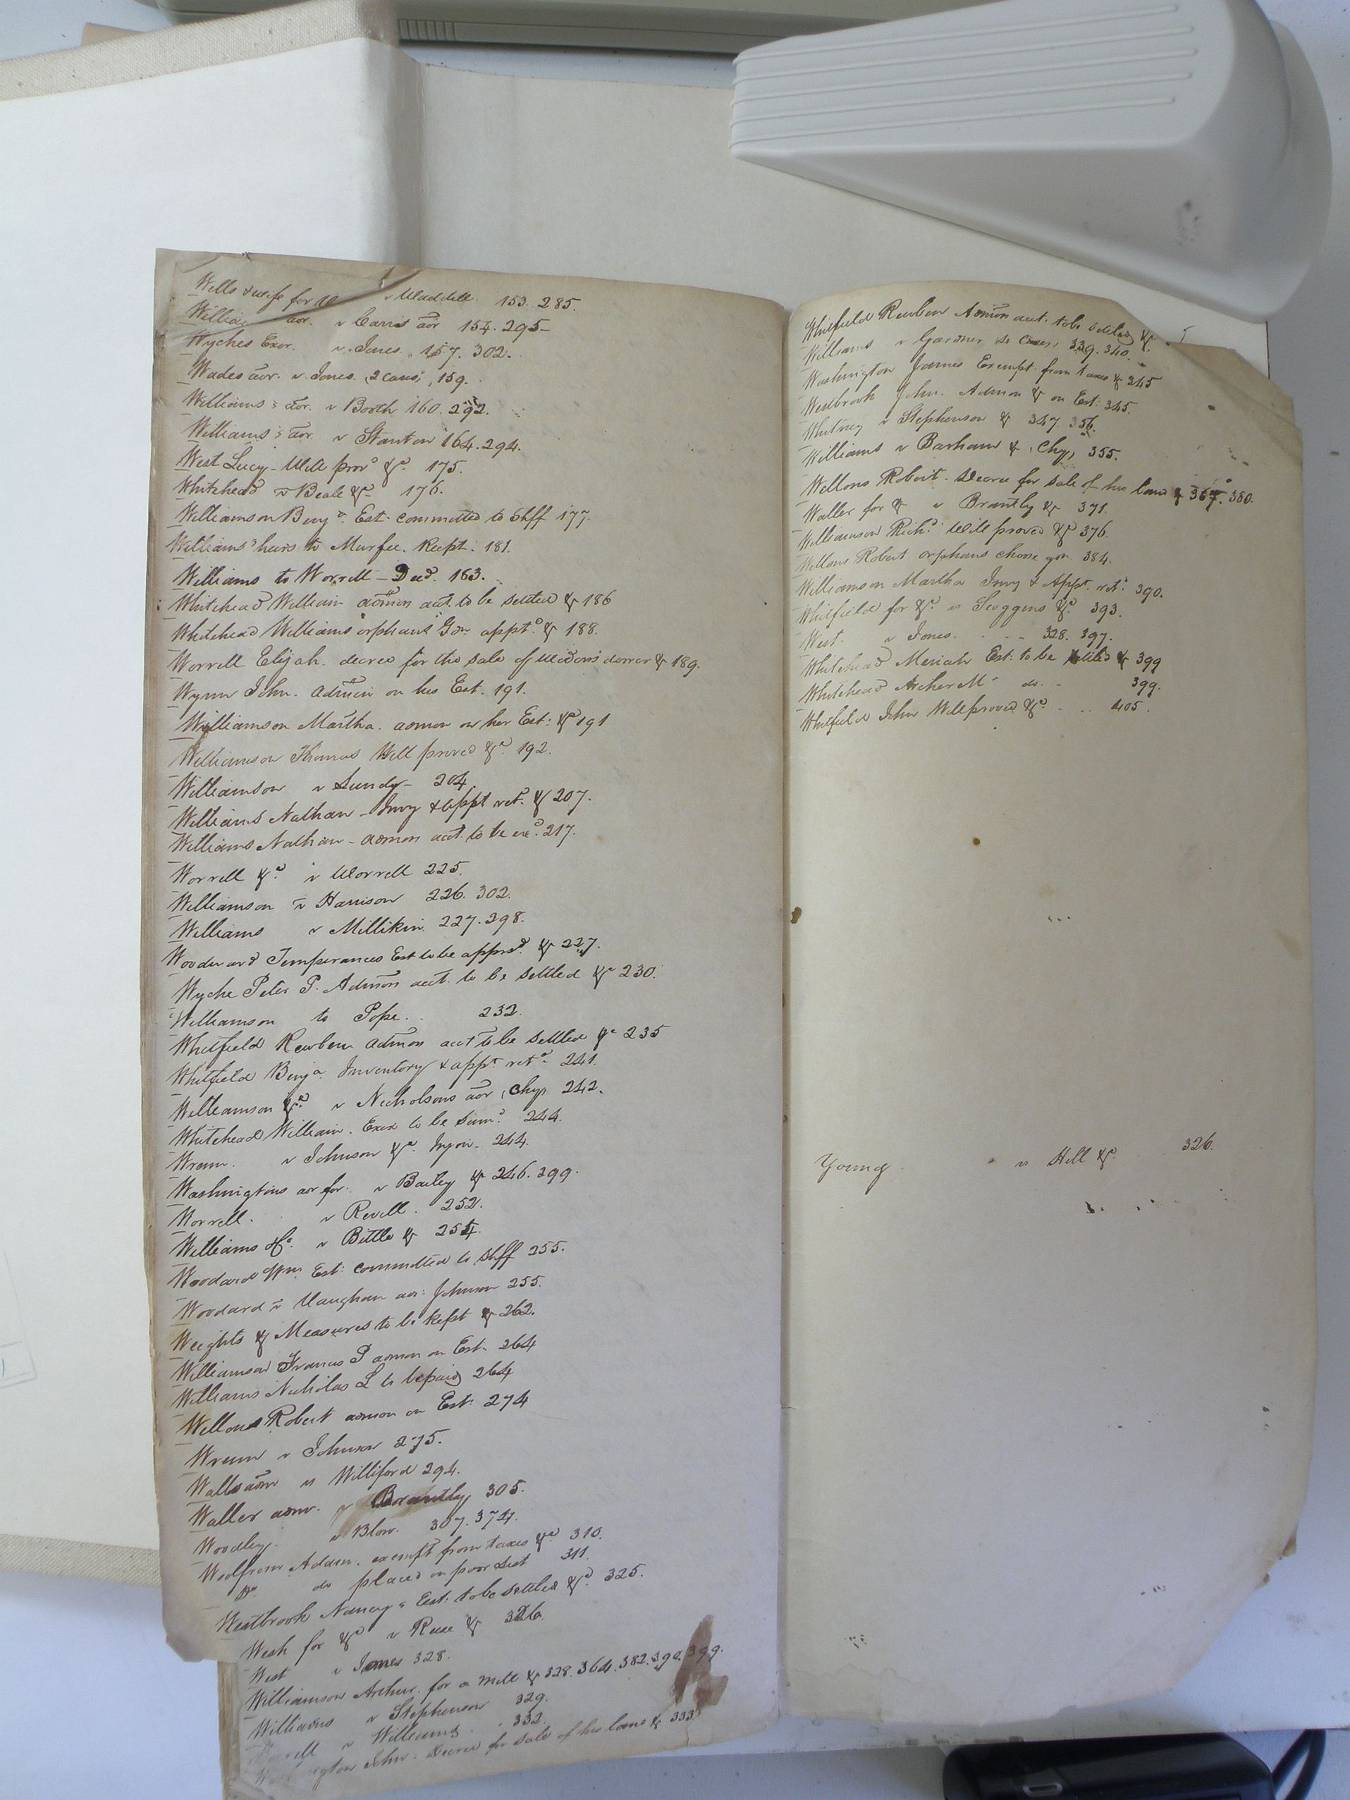 Wells & wife for v Waddill 153. 285.
Williams aor. v Carris aor 154. 295
Wyches Exor. v. Jones. 157. 302.
Wades aor. v. Jones. 2 caus. 159.
Williams's aor. v Booth 160. 292.
Williams's aor. v Stanton 164. 294.
West Lucy - Will provd &c. 175.
Whitehead v Beale &c. 176.
Williamson Benja. Est: committed to Shff 177.
Williams' heirs to Murfee. Recpt. 181.
Williams to Worrell - Deed. 163.
Whitehead William admon acct to be settled & 186
Whitehead Williams orphans Gdn. apptd. & 188.
Worrell Elijah. decree for the sale of widows dower & 189.
Wynn John. admon on his Est. 191.
Williamson Martha. admon on her Est: &c 191
Williamson Thomas Will proved &c. 192.
Williamson v Lundy - 204
Williams Nathan - Invy & appt retd. & 207.
Williams Nathan - admon acct. to be 217.
Worrell &c. v Worrell 225.
Williamson v Harrison 226. 302.
Williams v Millikin. 227. 398.
Woodward Temperances Est to be apprsd. & 227.
Wyche Peter P. Admon acct. to be settled &c 230.
Williamson to Pope. 232.
Whitfield Reuben admon acct to be settled &c 235
Whitfield Benja. Inventory & appt retd. 241.
Williamson &c. v Nicholsons aor, Chy. 242.
Whitehead William. Exor to be sumd. 244.
Wrenn. v Johnson &c. Injon. 244.
Washingtons aor for. v Bailey & 246. 299.
Worrell. v Revell. 252.
Williams &c. v Bittle & 254.
Woodard Wm. Est: committed to Shff 255.
Woodard v Vaughan aor: Johnson 255.
Weights & Measures to be kept & 262.
Williamson Francis P admon on Est. 264
Williams Nicholas L to be paid 264
Wellons Robert admon on Est: 274
Wrenn v Johnson 275.
Walls adm vs Williford 294.
Waller admr. v Brantly 305.
Woodley. v Blow. 307. 374.
Woolfrom Adam. exempt from taxes &c 310.
do placed on poor list 311.
Westbrook Nancy's Est: to be settled &c. 325.
West for &c v Rose & 326.
West v Jones 328.
Williamson Arthur. for a mill & 328. 364. 382. 390. 399.
Williams v Stephenson 329.
v Williams. 332.
John: Decree for sale of his land & 333.
Whitfield Reuben Admon acct. to be settled &c.
Williams v Gardner 339. 340.
Washington James Exempt from taxes & 245
Westbrook John. Admon & on Est: 345.
Whitney v Stephenson & 347. 356.
Williams v Barham & Chy, 355.
Wellons Robert. Decree for sale of his land & 367. 380.
Waller for & v Brantly & 371.
Williamson Richd. Will proved &c 376.
Wellons Robert orphans choose gdn. 384.
Williamson Martha Invy & Appt retd. 390.
Whitfield for &c. vs Scoggins &c. 393.
West. v Jones. 328. 397.
Whitehead Meriah Est: to be settled & 399
Whitehead Archer M do. 399.
Whitfield John Will proved &c. 405.
Young v Hill &c. 326.